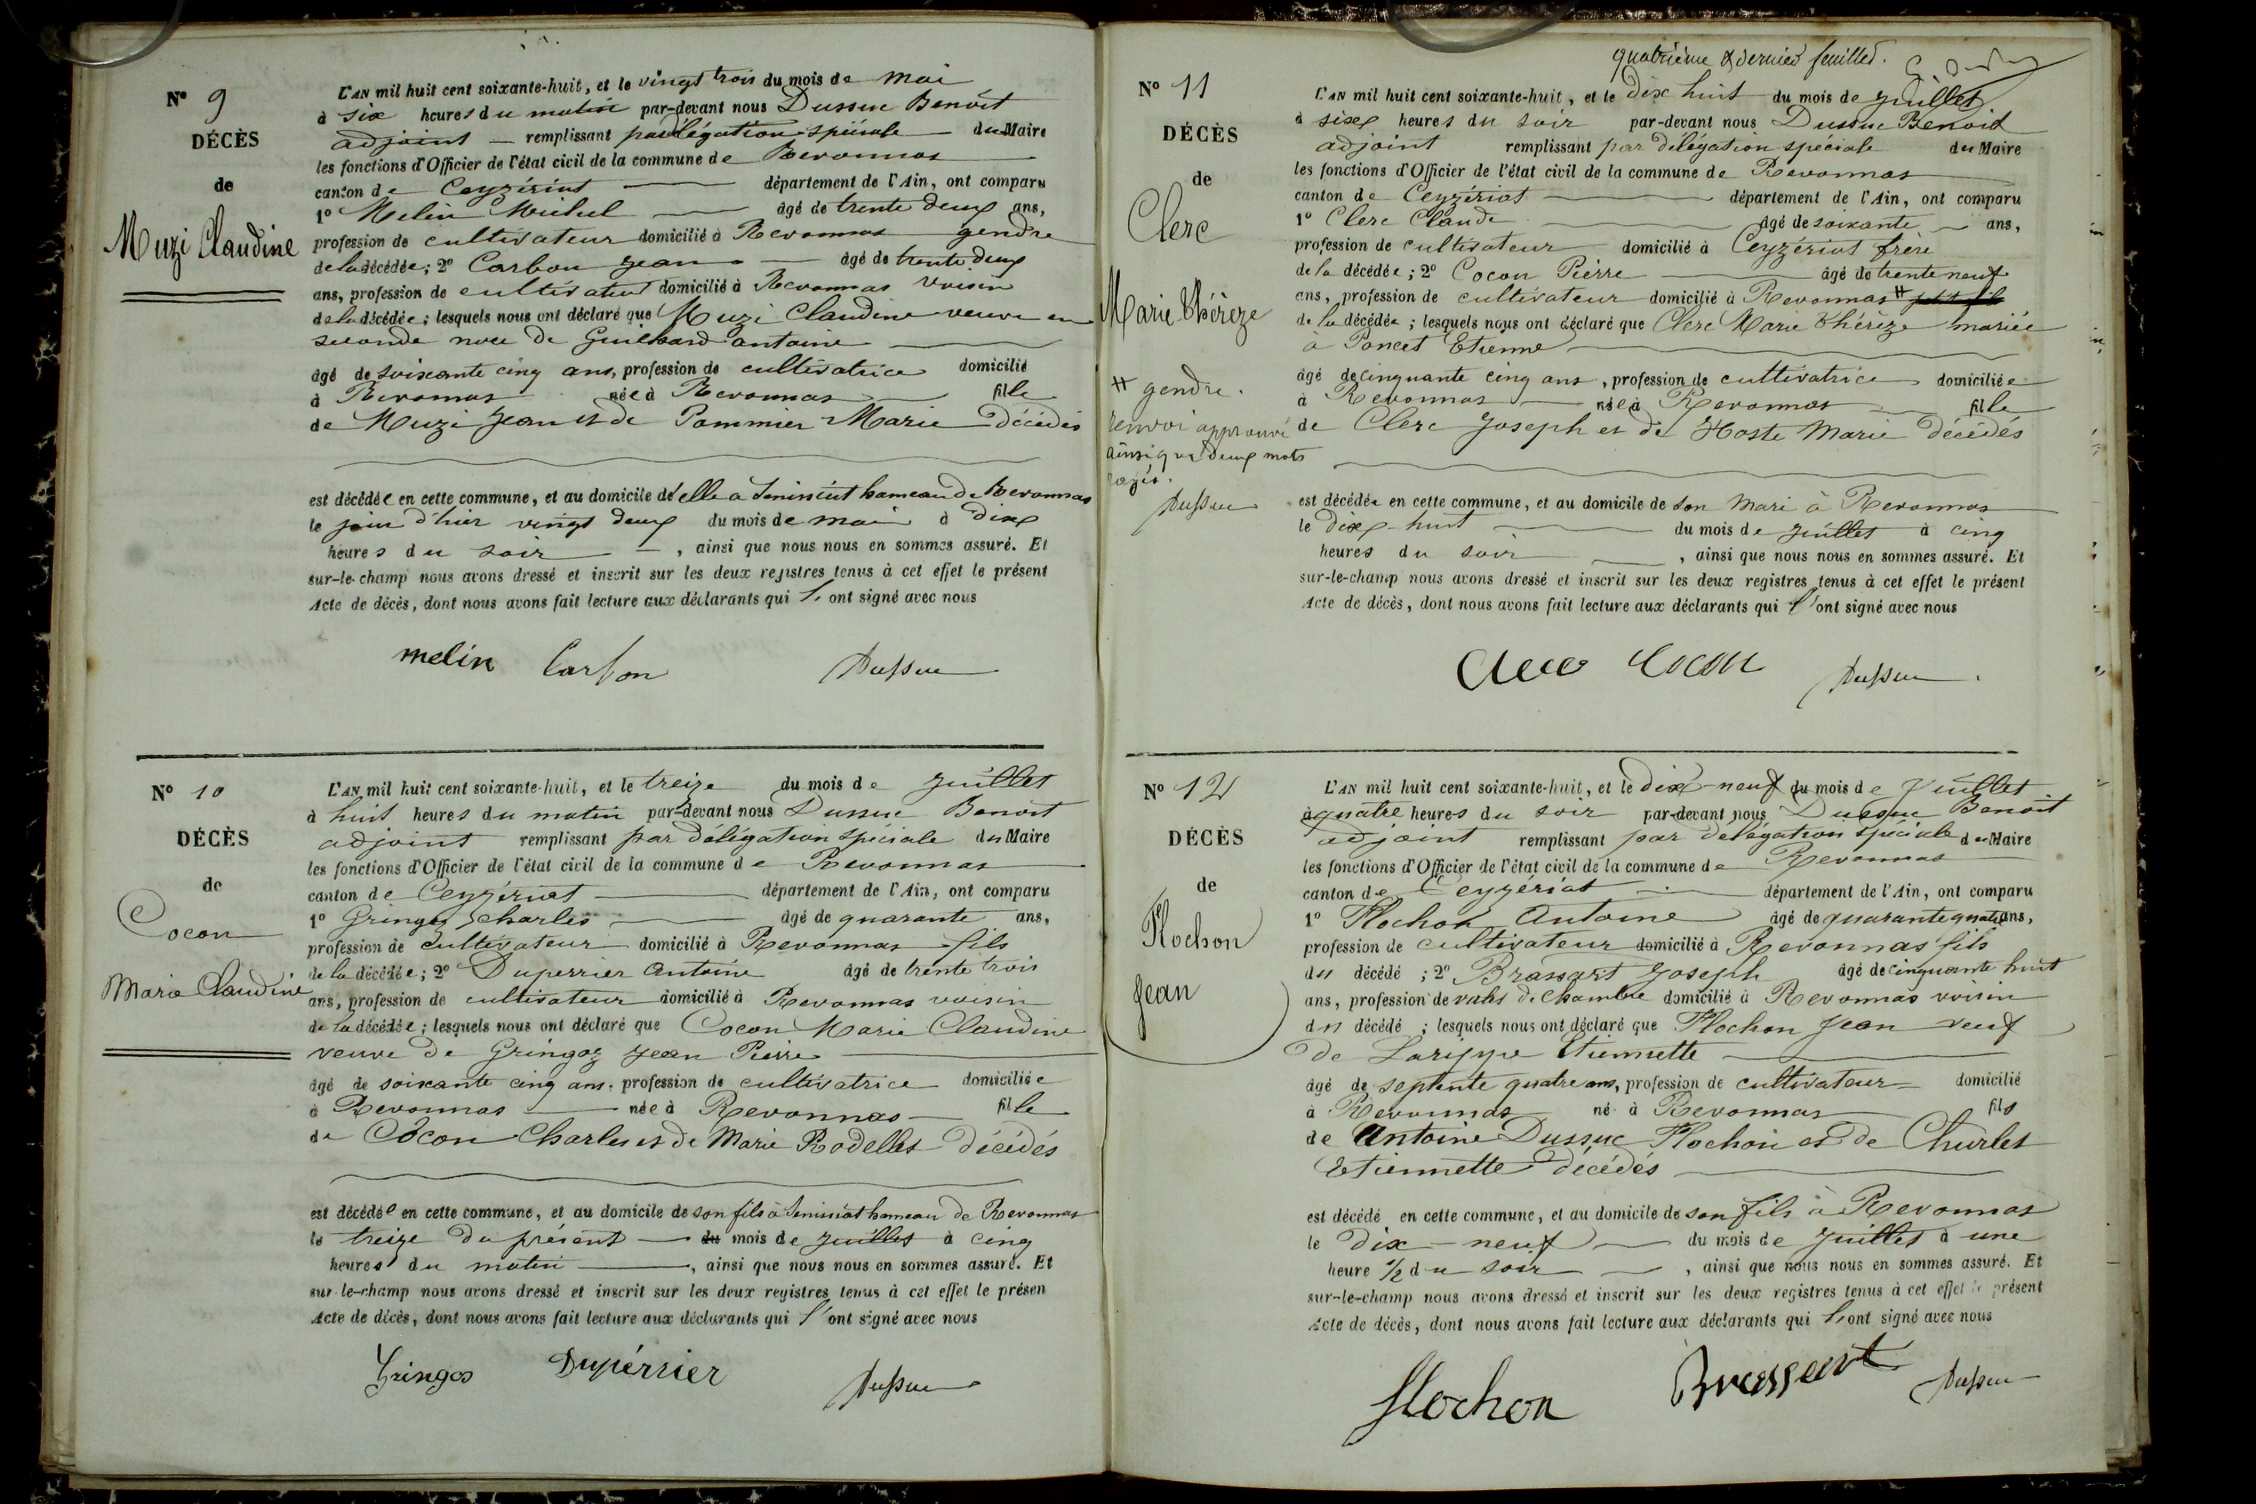 N° 9
DÉCÈS
de
Muzi Claudine
L'AN mil huit cent soixante-huit, et le vingt trois du mois de mai
à six heures du matin par-devant nous Dussuc Benoit
adjoint remplissant par délégation spéciale du Maire
les fonctions d'Officier de l'état civil de la commune de Revonnas
canton de Ceyzériat département de l'Ain, ont comparu
1° Melin Michel âgé de trente deux ans,
profession de cultivateur domicilié à Revonnas gendre
de la décédée; 2° Carbon Jean âgé de trente deux
ans, profession de cultivateur domicilié à Revonnas voisin
de la décédée; lesquels nous ont déclaré que Muzi Claudine veuve en
seconde noce de Guilhard antoine
âgé de soixante cinq ans, profession de cultivatrice domicilié
à Revonnas née à Revonnas fille
de Muzi Jean et de Pommier Marie décédés
est décédée en cette commune, et au domicile d'elle a Senissiat hameau de Revonnas
le jour d'hier vingt deux du mois de mai à dix
heures du soir, ainsi que nous nous en sommes assuré. Et
sur-le-champ nous avons dressé et inscrit sur les deux registres tenus à cet effet le présent
Acte de décès, dont nous avons fait lecture aux déclarants qui l'ont signé avec nous
melin Carbon Dussuc
N° 10
DÉCÈS
de
Cocon
Marie Claudine
L'AN mil huit cent soixante-huit, et le treize du mois de Juillet
à huit heures du matin par-devant nous Dussuc Benoit
adjoint remplissant par délégation spéciale du Maire
les fonctions d'Officier de l'état civil de la commune de Revonnas
canton de Ceyzériat département de l'Ain, ont comparu
1° Gringoz Charles âgé de quarante ans,
profession de cultivateur domicilié à Revonnas fils
de la décédée; 2° Duperrier Antoine âgé de trente trois
ans, profession de cultivateur domicilié à Revonnas voisin
de la décédée; lesquels nous ont déclaré que Cocon Marie Claudine
veuve de Gringoz Jean Pierre
âgé de soixante cinq ans, profession de cultivatrice domiciliée
à Revonnas née à Revonnas fille
de Cocon Charles et de Marie Rodellet décédés
est décédée en cette commune, et au domicile de son fils à Senissiat hameau de Revonnas
le treize du présent du mois de Juillet à cinq
heures du matin, ainsi que nous nous en sommes assuré. Et
sur-le-champ nous avons dressé et inscrit sur les deux registres tenus à cet effet le présen
Acte de décès, dont nous avons fait lecture aux déclarants qui l'ont signé avec nous
Gringos Dupérrier Dussuc
quatrième & dernier feuillet.
N° 11
DÉCÈS
de
Clerc
Marie Thérèze
# gendre.
renvoi approuvé
ainsi que deux mots
rayés.
Dussuc
L'AN mil huit cent soixante-huit, et le dix huit du mois de Juillet
à six heures du soir par-devant nous Dussuc Benoit
adjoint remplissant par délégation speciale du Maire
les fonctions d'Officier de l'état civil de la commune de Revonnas
canton de Ceyzériat département de l'Ain, ont comparu
1° Clerc Claude âgé de soixante ans,
profession de cultivateur domicilié à Ceyzériat frère
de la décédée; 2° Cocon Pierre âgé de trente neuf
ans, profession de cultivateur domicilié à Revonnas # petit fils
de la décédée; lesquels nous ont déclaré que Clerc Marie Thérèze mariée
à Poncet Etienne
âgé de cinquante cinq ans, profession de cultivatrice domiciliée
à Revonnas née à Revonnas fille
de Clerc Joseph et de Hoste Marie décédés
est décédée en cette commune, et au domicile de son mari à Revonnas
le dix-huit du mois de Juillet à cinq
heures du soir, ainsi que nous nous en sommes assuré. Et
sur-le-champ nous avons dressé et inscrit sur les deux registres tenus à cet effet le présent
Acte de décès, dont nous avons fait lecture aux déclarants qui l'ont signé avec nous
Clerc Cocon Dussuc
N° 12
DÉCÈS
de
Flochon
Jean
L'AN mil huit cent soixante-huit, et le dix-neuf du mois de Juillet
à quatre heures du soir par-devant nous Dussuc Benoit
adjoint remplissant par délégation spéciale du Maire
les fonctions d'Officier de l'état civil de la commune de Revonnas
canton de Ceyzériat département de l'Ain, ont comparu
1° Flochon Antoine âgé de quarante quatre ans,
profession de cultivateur domicilié à Revonnas fils
du décédé; 2° Brassart Joseph âgé de cinquante huit
ans, profession de valet de chambre domicilié à Revonnas voisin
du décédé; lesquels nous ont déclaré que Flochon Jean veuf
de Etiennette
âgé de septente quatre ans, profession de cultivateur domicilié
à Revonnas né à Revonnas fils
de Antoine Dussuc Flochon et de Churlet
Etiennette décédés
est décédé en cette commune, et au domicile de son fils à Revonnas
le dix-neuf du mois de Juillet à une
heure 1/2 du soir, ainsi que nous nous en sommes assuré. Et
sur-le-champ nous avons dressé et inscrit sur les deux registres tenus à cet effet le présent
Acte de décès, dont nous avons fait lecture aux déclarants qui l'ont signé avec nous
flochon Brassart Dussuc